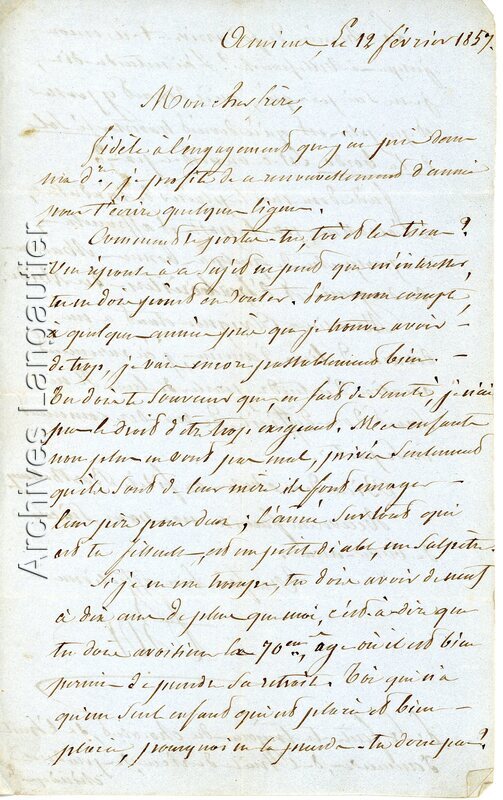 Amiens, le 12 février 1857.
Mon cher frère,
fidèle à l'engagement que j'ai pris dans
ma dre, je profite de ce renouvellement d'année
pour t'écrire quelques lignes.
Comment te portes-tu, toi et les tiens ?
Une réponse à ce sujet ne peut que m'intéresser,
tu ne dois point en douter. Pour mon compte,
à quelques années près que je trouve avoir
de trop, je vais encore passablement bien. —
Tu dois te souvenir que en fait de santé, je n'ai
pas le droit d'être trop exigeant. Mes enfants
non plus ne vont pas mal, privés seulement
qu'ils sont de leur mère ils font enrager
leur père pour deux ; l'aînée surtout qui
est ta filleule, est un petit diable, un salpêtre.
Si je ne me trompe, tu dois avoir de neuf
à dix ans de plus que moi, c'est-à-dire que
tu dois avoisiner la 70eme, âge où il est bien
permis de prendre sa retraite. Toi qui n'a
qu'un seul enfant qui est placé et bien
placé, pourquoi ne la prends-tu donc pas ?
Archives Langautier